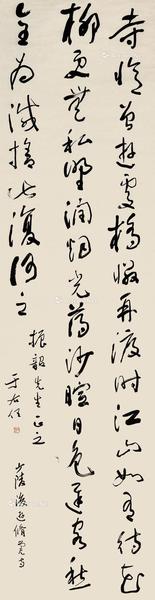 寺憶曾遊處橋憐再渡時江山如有待花
柳更無私野潤煙光薄沙暄日色遲客愁
全為減捨此復何之
振韶先生正之
于右任
少陵後遊修覺寺